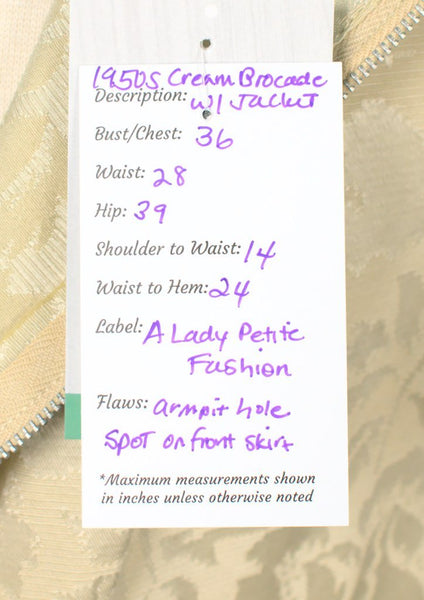 1950s Cream Brocade
Description: w/ Jacket
Bust/Chest: 36
Waist: 28
Hip: 39
Shoulder to Waist: 14
Waist to Hem: 24
Label: A Lady Petite
Fashion
Flaws: armpit hole
spot on front skirt
*Maximum measurements shown
in inches unless otherwise noted